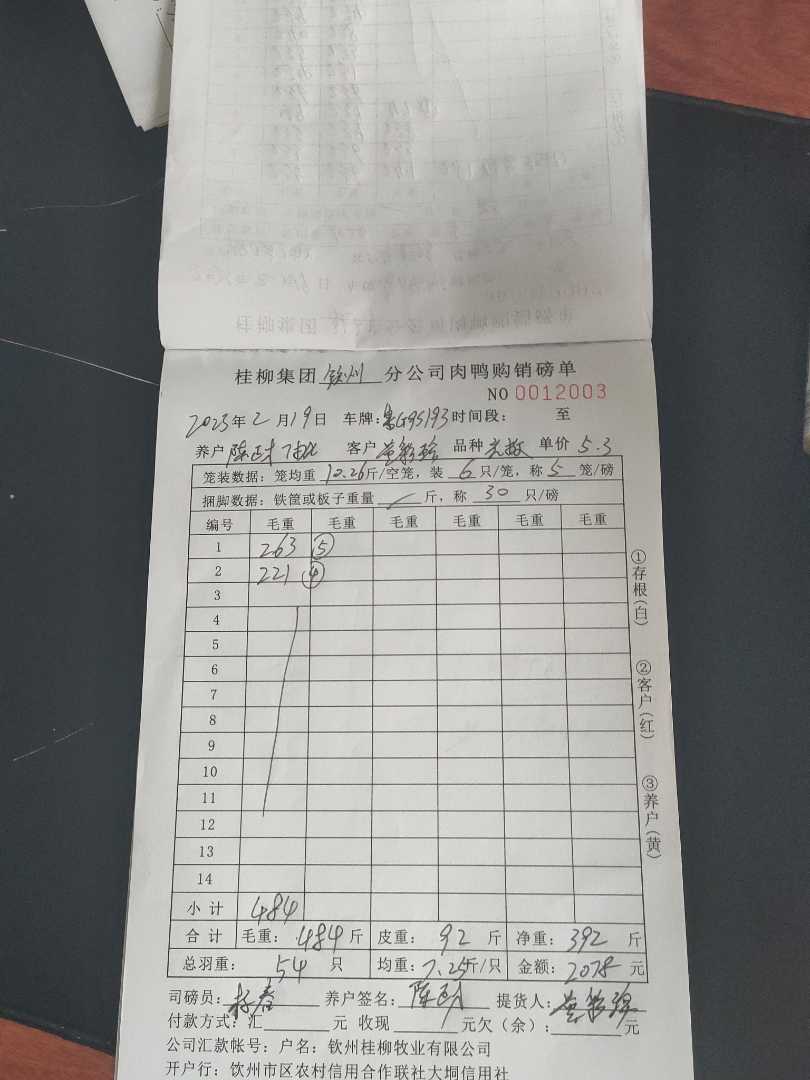 桂柳集团 钦州 分公司肉鸭购销磅单
NO 0012003
2023年2月19日 车牌: G95193 时间段: 至
养户 陈 客户 品种 单价 5.3
笼装数据: 笼均重 10.26斤/空笼, 装 6 只/笼, 称 5 笼/磅
捆脚数据: 铁筐或板子重量 斤, 称 30 只/磅
编号 毛重 毛重 毛重 毛重 毛重 毛重
1 263 ⑤
2 221 ④
3
4
5
6
7
8
9
10
11
12
13
14
小计 484
合计 毛重: 484斤 皮重: 92 斤 净重: 392 斤
总羽重: 54 只 均重: 7.25斤/只 金额: 2078 元
司磅员: 养户签名: 陈 提货人:
付款方式: 汇 元 收现 元欠(余): 元
公司汇款帐号: 户名: 钦州桂柳牧业有限公司
开户行: 钦州市区农村信用合作联社大垌信用社
①存根(白)
②客户(红)
③养户(黄)